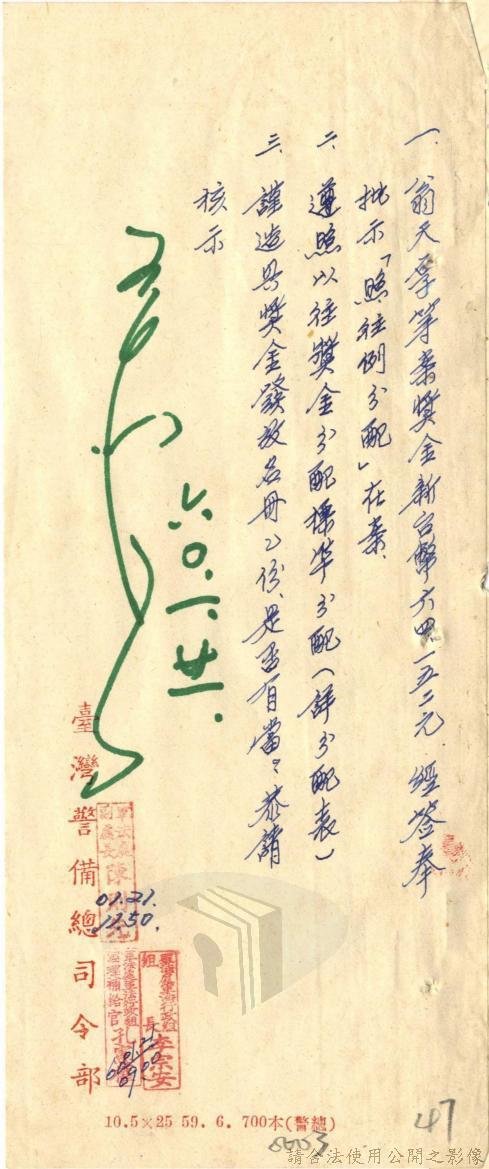 一、翁天享等案獎金新台幣六四一五二元經簽奉
批示「照往例分配」在案
二、遵照以往獎金分配標準分配（詳分配表）
三、謹造具獎金發放名冊乙份、是否有當？恭請
核示
六〇.一.廿一.
臺灣警備總司令部
軍法處
副處長
陳
01.21.
11.50.
軍法處軍法行政組
組長
李宗安
10.5×25 59. 6. 700本(警總)
47
請合法使用公開之影像